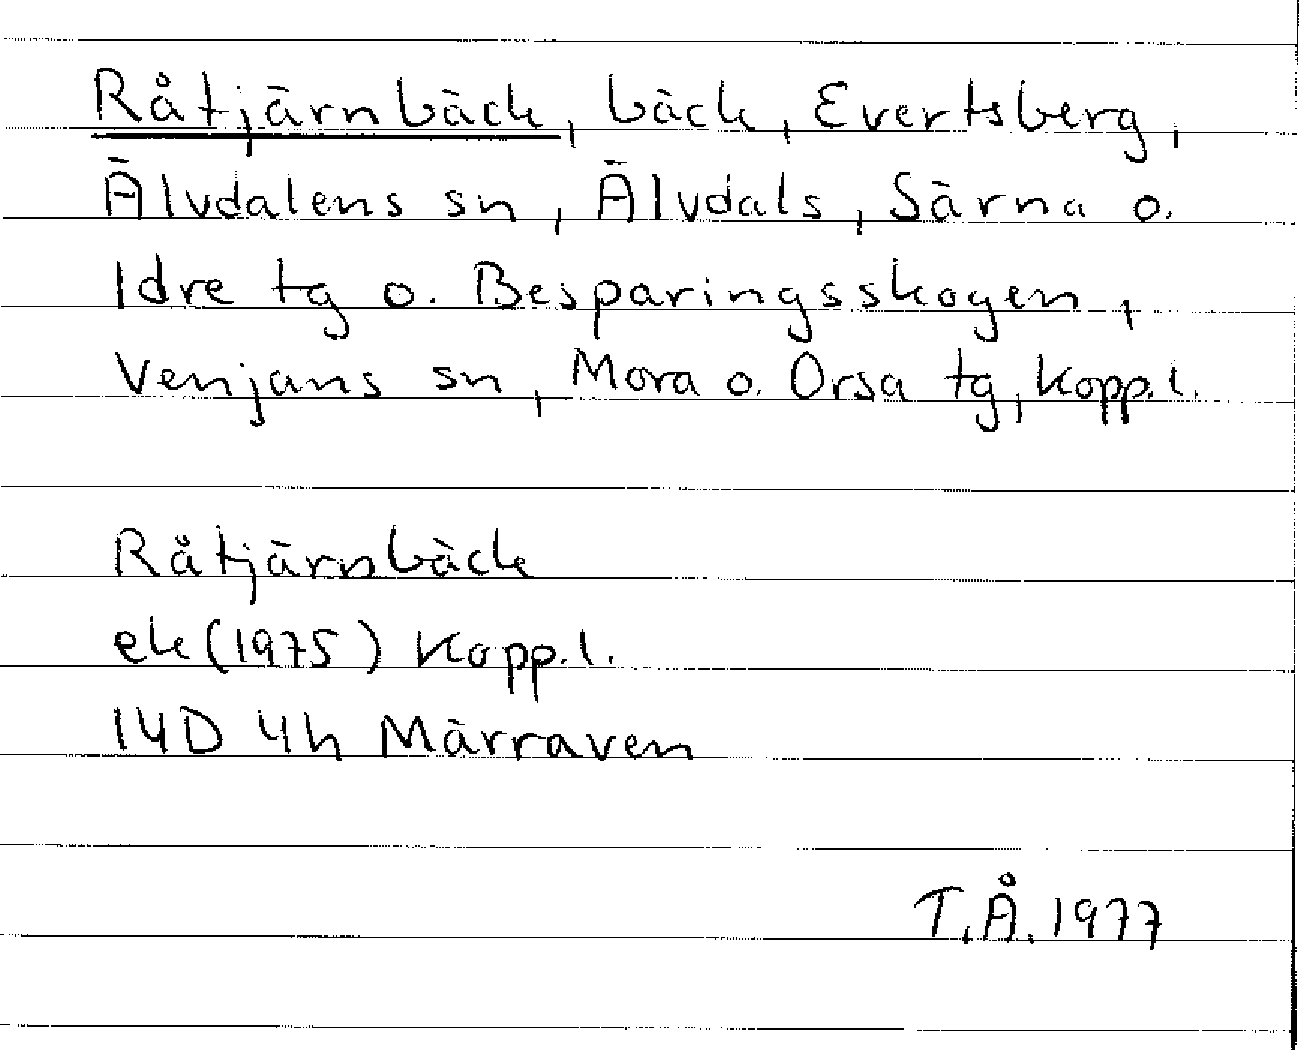 Råtjärnbäck, bäck, Evertsberg,
Älvdalens sn, Älvdals, Särna o.
Idre tg o. Besparingsskogen,
Venjans sn, Mora o. Orsa tg, Kopp.l.
Råtjärnbäck
ek (1975) Kopp.l.
14D 4h Märraven
T.Å. 1977